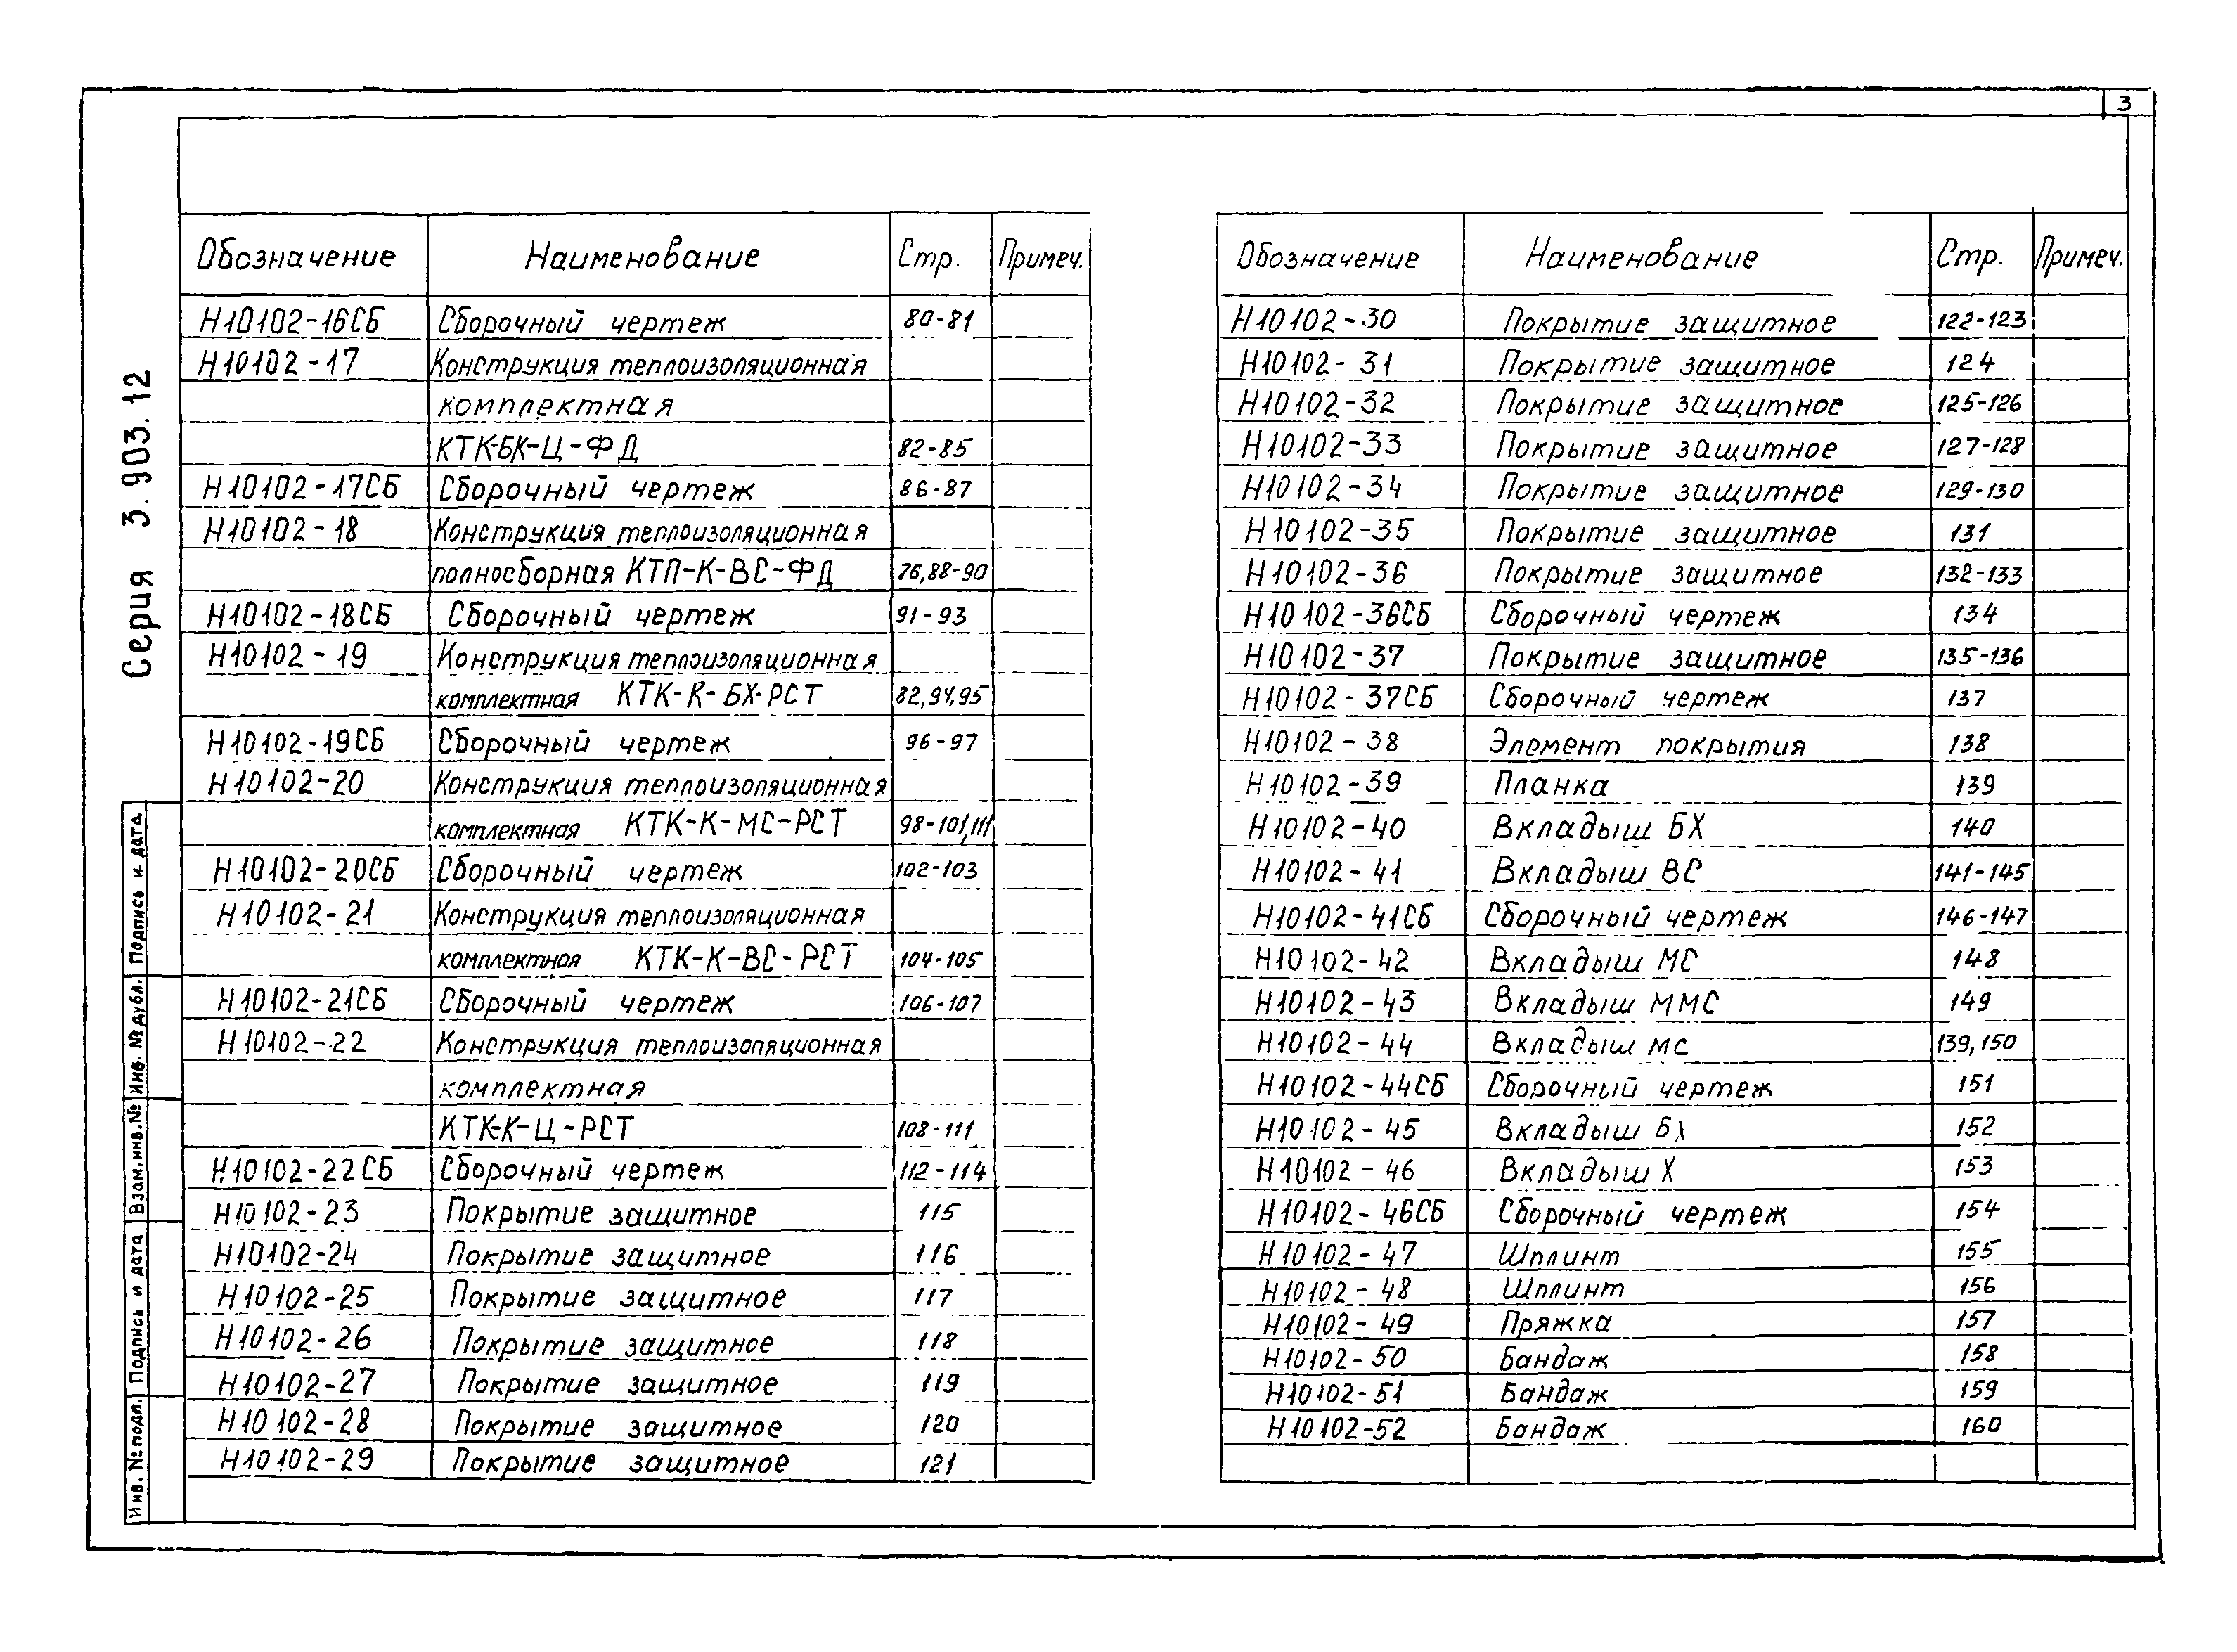 3
Серия 3.903.12
Обозначение Наименование Стр. Примеч.
Н10102-16СБ Сборочный чертеж 80-81
Н10102-17 Конструкция теплоизоляционная
комплектная
КТК-БК-Ц-ФД 82-85
Н10102-17СБ Сборочный чертеж 86-87
Н10102-18 Конструкция теплоизоляционная
полносборная КТП-К-ВС-ФД 76,88-90
Н10102-18СБ Сборочный чертеж 91-93
Н10102-19 Конструкция теплоизоляционная
комплектная КТК-К-БХ-РСТ 82,94,95
Н10102-19СБ Сборочный чертеж 96-97
Н10102-20 Конструкция теплоизоляционная
комплектная КТК-К-МС-РСТ 98-101,111
Н10102-20СБ Сборочный чертеж 102-103
Н10102-21 Конструкция теплоизоляционная
комплектная КТК-К-ВС-РСТ 104-105
Н10102-21СБ Сборочный чертеж 106-107
Н10102-22 Конструкция теплоизоляционная
комплектная
КТК-К-Ц-РСТ 108-111
Н10102-22СБ Сборочный чертеж 112-114
Н10102-23 Покрытие защитное 115
Н10102-24 Покрытие защитное 116
Н10102-25 Покрытие защитное 117
Н10102-26 Покрытие защитное 118
Н10102-27 Покрытие защитное 119
Н10102-28 Покрытие защитное 120
Н10102-29 Покрытие защитное 121
Обозначение Наименование Стр. Примеч.
Н10102-30 Покрытие защитное 122-123
Н10102-31 Покрытие защитное 124
Н10102-32 Покрытие защитное 125-126
Н10102-33 Покрытие защитное 127-128
Н10102-34 Покрытие защитное 129-130
Н10102-35 Покрытие защитное 131
Н10102-36 Покрытие защитное 132-133
Н10102-36СБ Сборочный чертеж 134
Н10102-37 Покрытие защитное 135-136
Н10102-37СБ Сборочный чертеж 137
Н10102-38 Элемент покрытия 138
Н10102-39 Планка 139
Н10102-40 Вкладыш БХ 140
Н10102-41 Вкладыш ВС 141-145
Н10102-41СБ Сборочный чертеж 146-147
Н10102-42 Вкладыш МС 148
Н10102-43 Вкладыш ММС 149
Н10102-44 Вкладыш мс 139,150
Н10102-44СБ Сборочный чертеж 151
Н10102-45 Вкладыш БХ 152
Н10102-46 Вкладыш Х 153
Н10102-46СБ Сборочный чертеж 154
Н10102-47 Шплинт 155
Н10102-48 Шплинт 156
Н10102-49 Пряжка 157
Н10102-50 Бандаж 158
Н10102-51 Бандаж 159
Н10102-52 Бандаж 160
Инв. № подл. Подпись и дата Взам. инв. № Инв. № дубл. Подпись и дата